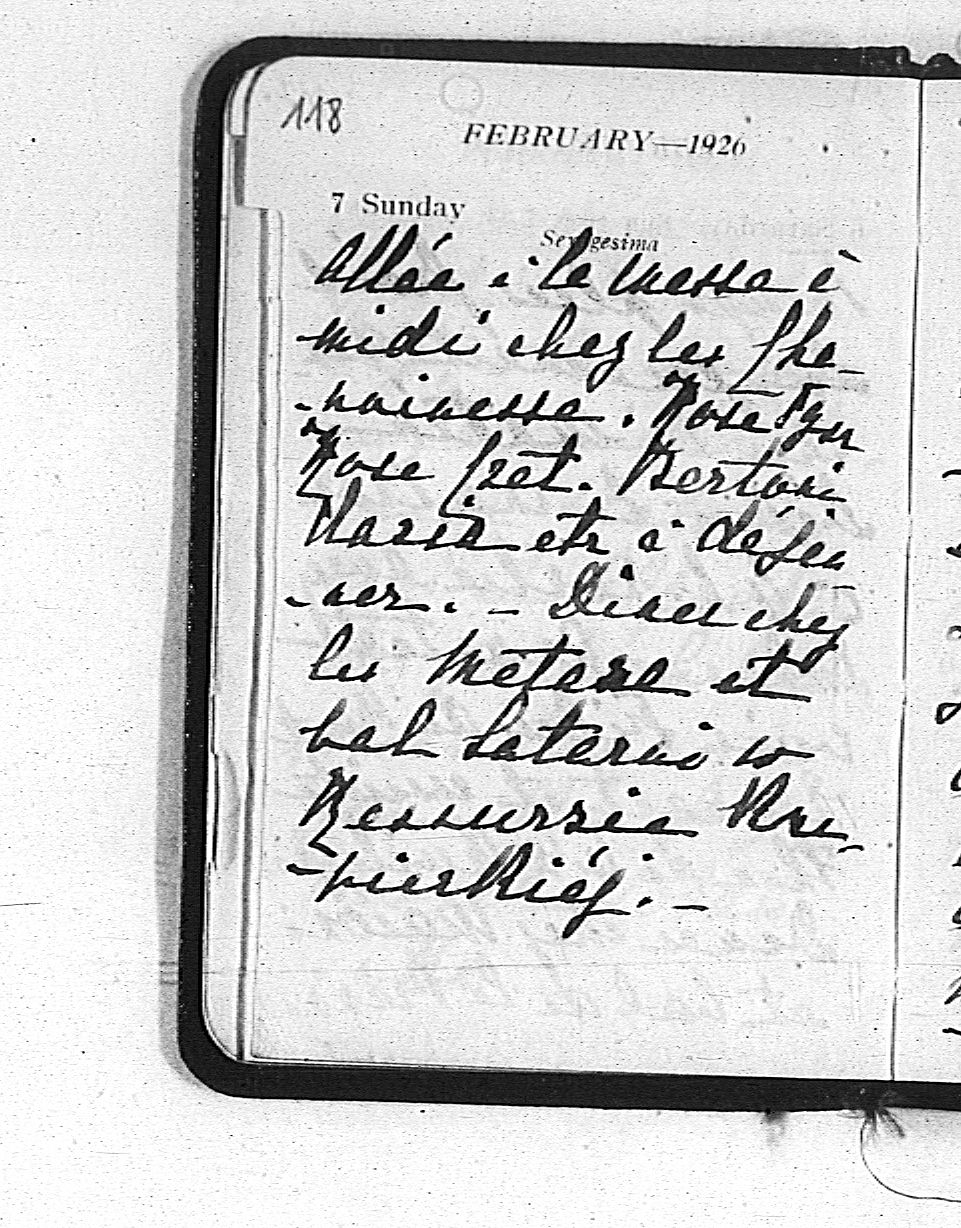 118
FEBRUARY—1926
7 Sunday
Sexagesima
Allée à la messe à
midi chez les Cha-
-noinesse. Rose Tyn
Rose Czet. Bertoni
Maria etc à déjeu
-ner. - Diner chez
les Metaxa et
bal Latarni w
Ressursie Ku-
-pieckiéj. -